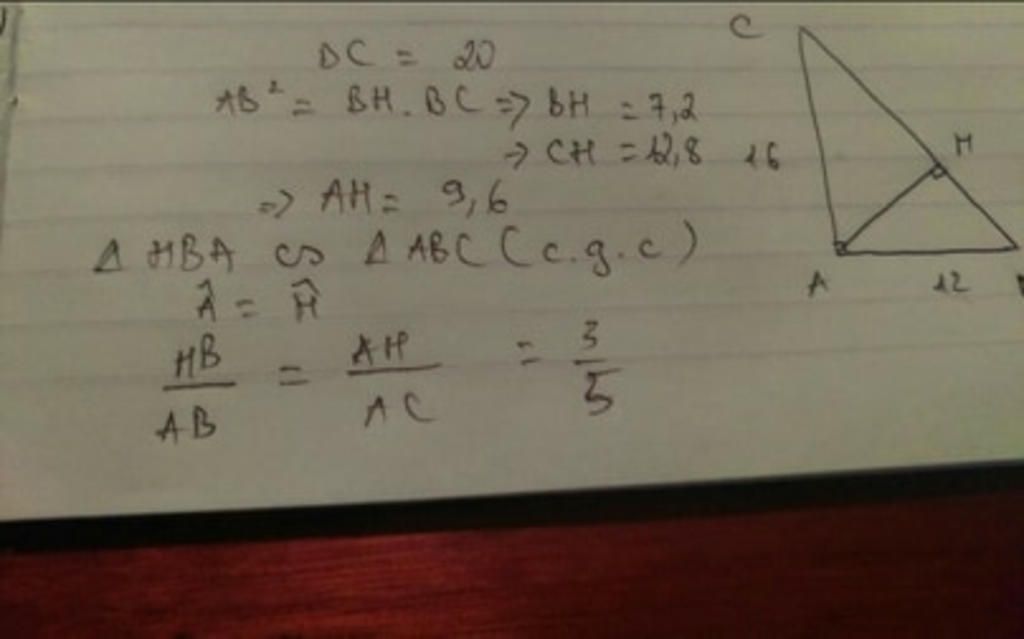 BC = 20
AB² = BH.BC => BH = 7,2
=> CH = 12,8
=> AH = 9,6
Δ HBA ∽ Δ ABC (c.g.c)
Â = Ĥ
HB/AB = AH/AC = 3/5
C
H
16
A
12
B